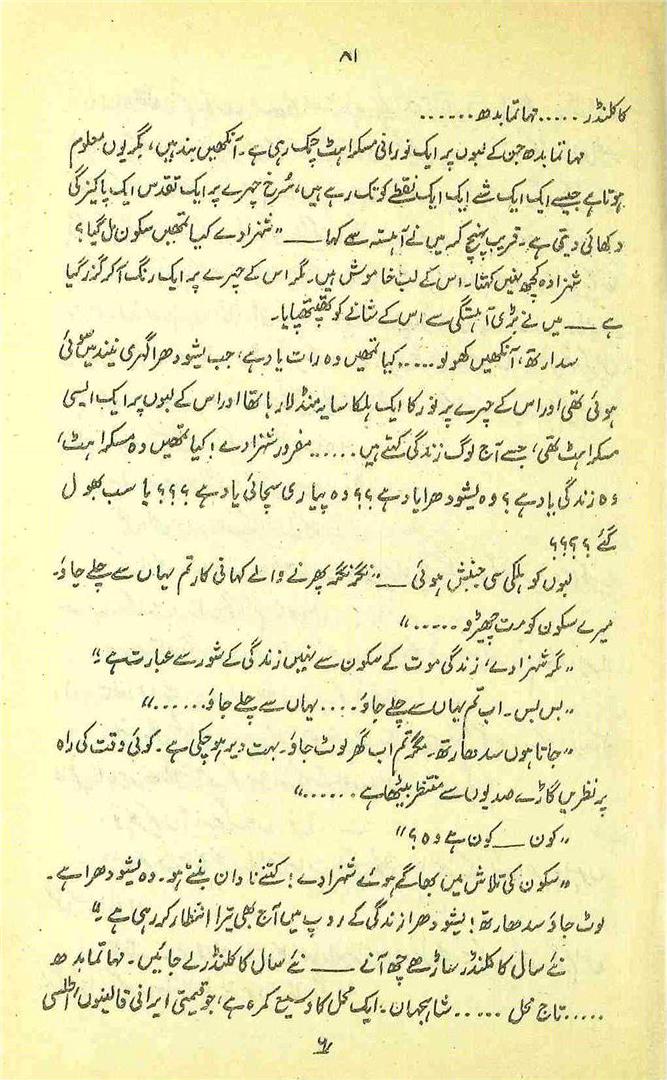 ۸۱
کا کلنڈر ..... مہاتما بدھ ......
مہاتما بدھ جن کے لبوں پر ایک نورانی مسکراہٹ چمک رہی ہے۔ آنکھیں بند ہیں، مگر یوں معلوم
ہوتا ہے جیسے ایک ایک شے ایک ایک نقطے کو تک رہے ہیں، سُرخ چہرے پر ایک تقدس ایک پاکیزگی
دکھائی دیتی ہے۔ قریب پہنچ کر میں نے آہستہ سے کہا ــــ "شہزادے کیا تمھیں سکون مل گیا؟
شہزادہ کچھ نہیں کہتا۔ اس کے لب خاموش ہیں۔ مگر اس کے چہرے پر ایک رنگ آکر گزر گیا
ہے ــــ میں نے بڑی آہستگی سے اس کے شانے کو تھپتھپایا۔
سدارتھ، آنکھیں کھولو ..... کیا تمھیں وہ رات یاد ہے، جب یشودھرا گہری نیند میں سوئی
ہوئی تھی اور اس کے چہرے پر نور کا ایک ہلکا سایہ منڈلا رہا تھا اور اس کے لبوں پر ایک ایسی
مسکراہٹ تھی، جسے آج لوگ زندگی کہتے ہیں ...... مفرور شہزادے! کیا تمھیں وہ مسکراہٹ،
وہ زندگی یاد ہے؟ وہ یشودھرا یاد ہے؟؟ وہ پیاری سچائی یاد ہے؟؟؟ یا سب بھول
گئے؟؟؟؟
لبوں کو ہلکی سی جنبش ہوئی ــــ "نگر نگر پھرنے والے کہانی کار تم یہاں سے چلے جاؤ۔
میرے سکون کو مت چھیڑو ....."
"مگر شہزادے، زندگی موت کے سکون سے نہیں زندگی کے شور سے عبارت ہے۔"
"بس بس۔ اب تم یہاں سے چلے جاؤ .... یہاں سے چلے جاؤ......"
"جاتا ہوں سدھارتھ۔ مگر تم اب گھر لوٹ جاؤ۔ بہت دیر ہو چکی ہے۔ کوئی وقت کی راہ
پر نظریں گاڑے صدیوں سے منتظر بیٹھا ہے ......"
"کون ــــ کون ہے وہ؟"
"سکون کی تلاش میں بھاگے ہوئے شہزادے! کتنے نادان بنتے ہو۔ وہ یشودھرا ہے۔
لوٹ جاؤ سدھارتھ! یشودھرا زندگی کے روپ میں آج بھی ترا انتظار کر رہی ہے۔"
نئے سال کا کلنڈر ساڑھے چھ آنے ــــ نئے سال کا کلنڈر لے جائیں۔ مہاتما بدھ
..... تاج محل ..... شاہجہان۔ ایک محل کا وسیع کمرہ ہے، جو قیمتی ایرانی قالینوں، اطلسی